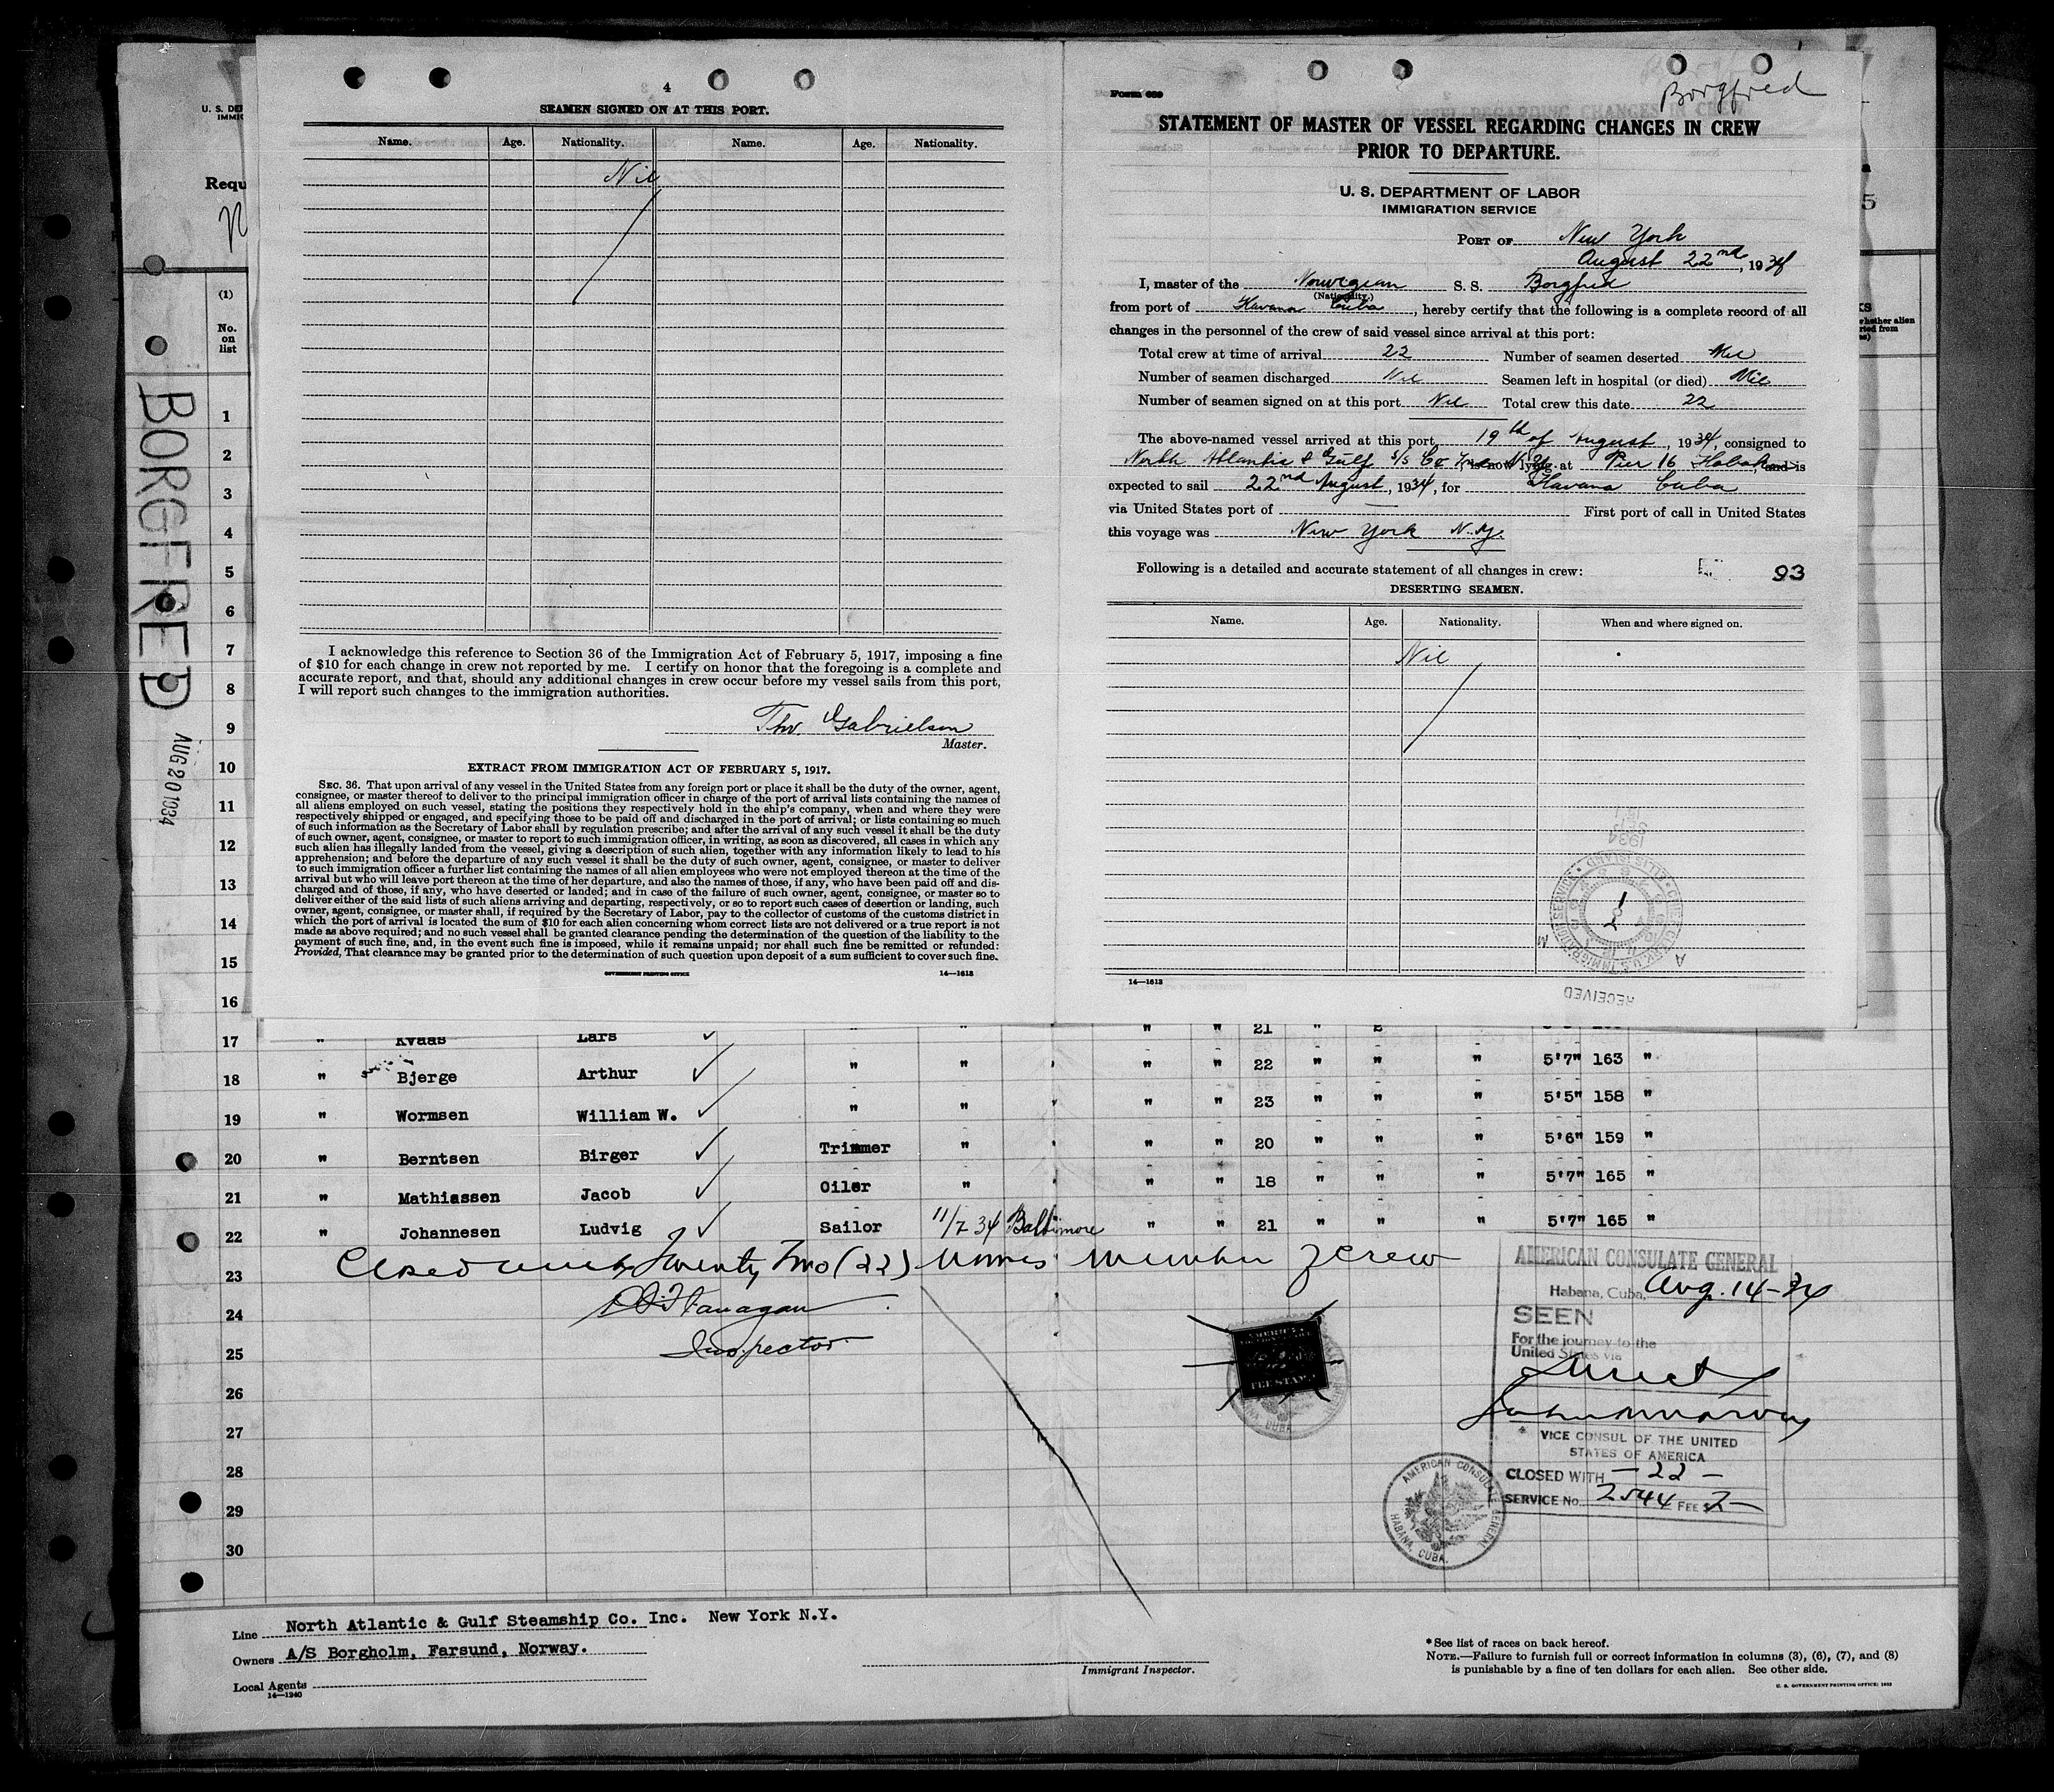 4
SEAMEN SIGNED ON AT THIS PORT.
Name. Age. Nationality. Name. Age. Nationality.
Nil
I acknowledge this reference to Section 36 of the Immigration Act of February 5, 1917, imposing a fine
of $10 for each change in crew not reported by me. I certify on honor that the foregoing is a complete and
accurate report, and that, should any additional changes in crew occur before my vessel sails from this port,
I will report such changes to the immigration authorities.
Thv. Gabrielsen
Master.
EXTRACT FROM IMMIGRATION ACT OF FEBRUARY 5, 1917.
SEC. 36. That upon arrival of any vessel in the United States from any foreign port or place it shall be the duty of the owner, agent,
consignee, or master thereof to deliver to the principal immigration officer in charge of the port of arrival lists containing the names of
all aliens employed on such vessel, stating the positions they respectively hold in the ship's company, when and where they were
respectively shipped or engaged, and specifying those to be paid off and discharged in the port of arrival; or lists containing so much
of such information as the Secretary of Labor shall by regulation prescribe; and after the arrival of any such vessel it shall be the duty
of such owner, agent, consignee, or master to report to such immigration officer, in writing, as soon as discovered, all cases in which any
such alien has illegally landed from the vessel, giving a description of such alien, together with any information likely to lead to his
apprehension; and before the departure of any such vessel it shall be the duty of such owner, agent, consignee, or master to deliver
to such immigration officer a further list containing the names of all alien employees who were not employed thereon at the time of the
arrival but who will leave port thereon at the time of her departure, and also the names of those, if any, who have been paid off and dis-
charged and of those, if any, who have deserted or landed; and in case of the failure of such owner, agent, consignee, or master so to
deliver either of the said lists of such aliens arriving and departing, respectively, or so to report such cases of desertion or landing, such
owner, agent, consignee, or master shall, if required by the Secretary of Labor, pay to the collector of customs of the customs district in
which the port of arrival is located the sum of $10 for each alien concerning whom correct lists are not delivered or a true report is not
made as above required; and no such vessel shall be granted clearance pending the determination of the question of the liability to the
payment of such fine, and, in the event such fine is imposed, while it remains unpaid; nor shall such fine be remitted or refunded:
Provided, That clearance may be granted prior to the determination of such question upon deposit of a sum sufficient to cover such fine.
GOVERNMENT PRINTING OFFICE 14—1613
Form 689
Borgfred
STATEMENT OF MASTER OF VESSEL REGARDING CHANGES IN CREW
PRIOR TO DEPARTURE.
U. S. DEPARTMENT OF LABOR
IMMIGRATION SERVICE
PORT OF New York
August 22nd, 1934
I, master of the Norwegian S. S. Borgfred
(Nationality.)
from port of Havana Cuba, hereby certify that the following is a complete record of all
changes in the personnel of the crew of said vessel since arrival at this port:
Total crew at time of arrival 22 Number of seamen deserted Nil
Number of seamen discharged Nil Seamen left in hospital (or died) Nil
Number of seamen signed on at this port Nil Total crew this date 22
The above-named vessel arrived at this port 19th of August, 1934, consigned to
North Atlantic & Gulf S/S Co Inc N.Y. is now lying at Pier 16 Hoboken and is
expected to sail 22nd August, 1934, for Havana Cuba
via United States port of First port of call in United States
this voyage was New York N.Y.
Following is a detailed and accurate statement of all changes in crew:
93
DESERTING SEAMEN.
Name. Age. Nationality. When and where signed on.
Nil
14—1613
RECEIVED
1934
U. S. DE
IMMIG
Requ
(1)
No.
on
list
BORGFRED
AUG 20 1934
1
2
3
4
5
6
7
8
9
10
11
12
13
14
15
16
17 " Kvaas Lars ✓ " " " " 21 "
18 " Bjerge Arthur ✓ " " " " " 22 " " " 5'7" 163 "
19 " Wormsen William W. ✓ " " " " " 23 " " " 5'5" 158 "
20 " Berntsen Birger ✓ Trimmer " " " " 20 " " " 5'6" 159 "
21 " Mathiassen Jacob ✓ Oiler " " " " 18 " " " 5'7" 165 "
22 " Johannesen Ludvig ✓ Sailor 11/7 34 Baltimore " " 21 " " " 5'7" 165 "
23 Closed with Twenty Two (22) Names Member of crew
24 Flanagan
25 Inspector
26
27
28
29
30
AMERICAN CONSULATE GENERAL
Habana, Cuba, Aug. 14-34
SEEN
For the journey to the
United States via
Direct
VICE CONSUL OF THE UNITED
STATES OF AMERICA
CLOSED WITH - 22 -
SERVICE No. 2544 FEE $2-
AMERICAN CONSULATE GENERAL
HABANA, CUBA.
Line North Atlantic & Gulf Steamship Co. Inc. New York N.Y.
Owners A/S Borgholm, Farsund, Norway.
Local Agents
14—1240
Immigrant Inspector.
*See list of races on back hereof.
NOTE.—Failure to furnish full or correct information in columns (3), (6), (7), and (8)
is punishable by a fine of ten dollars for each alien. See other side.